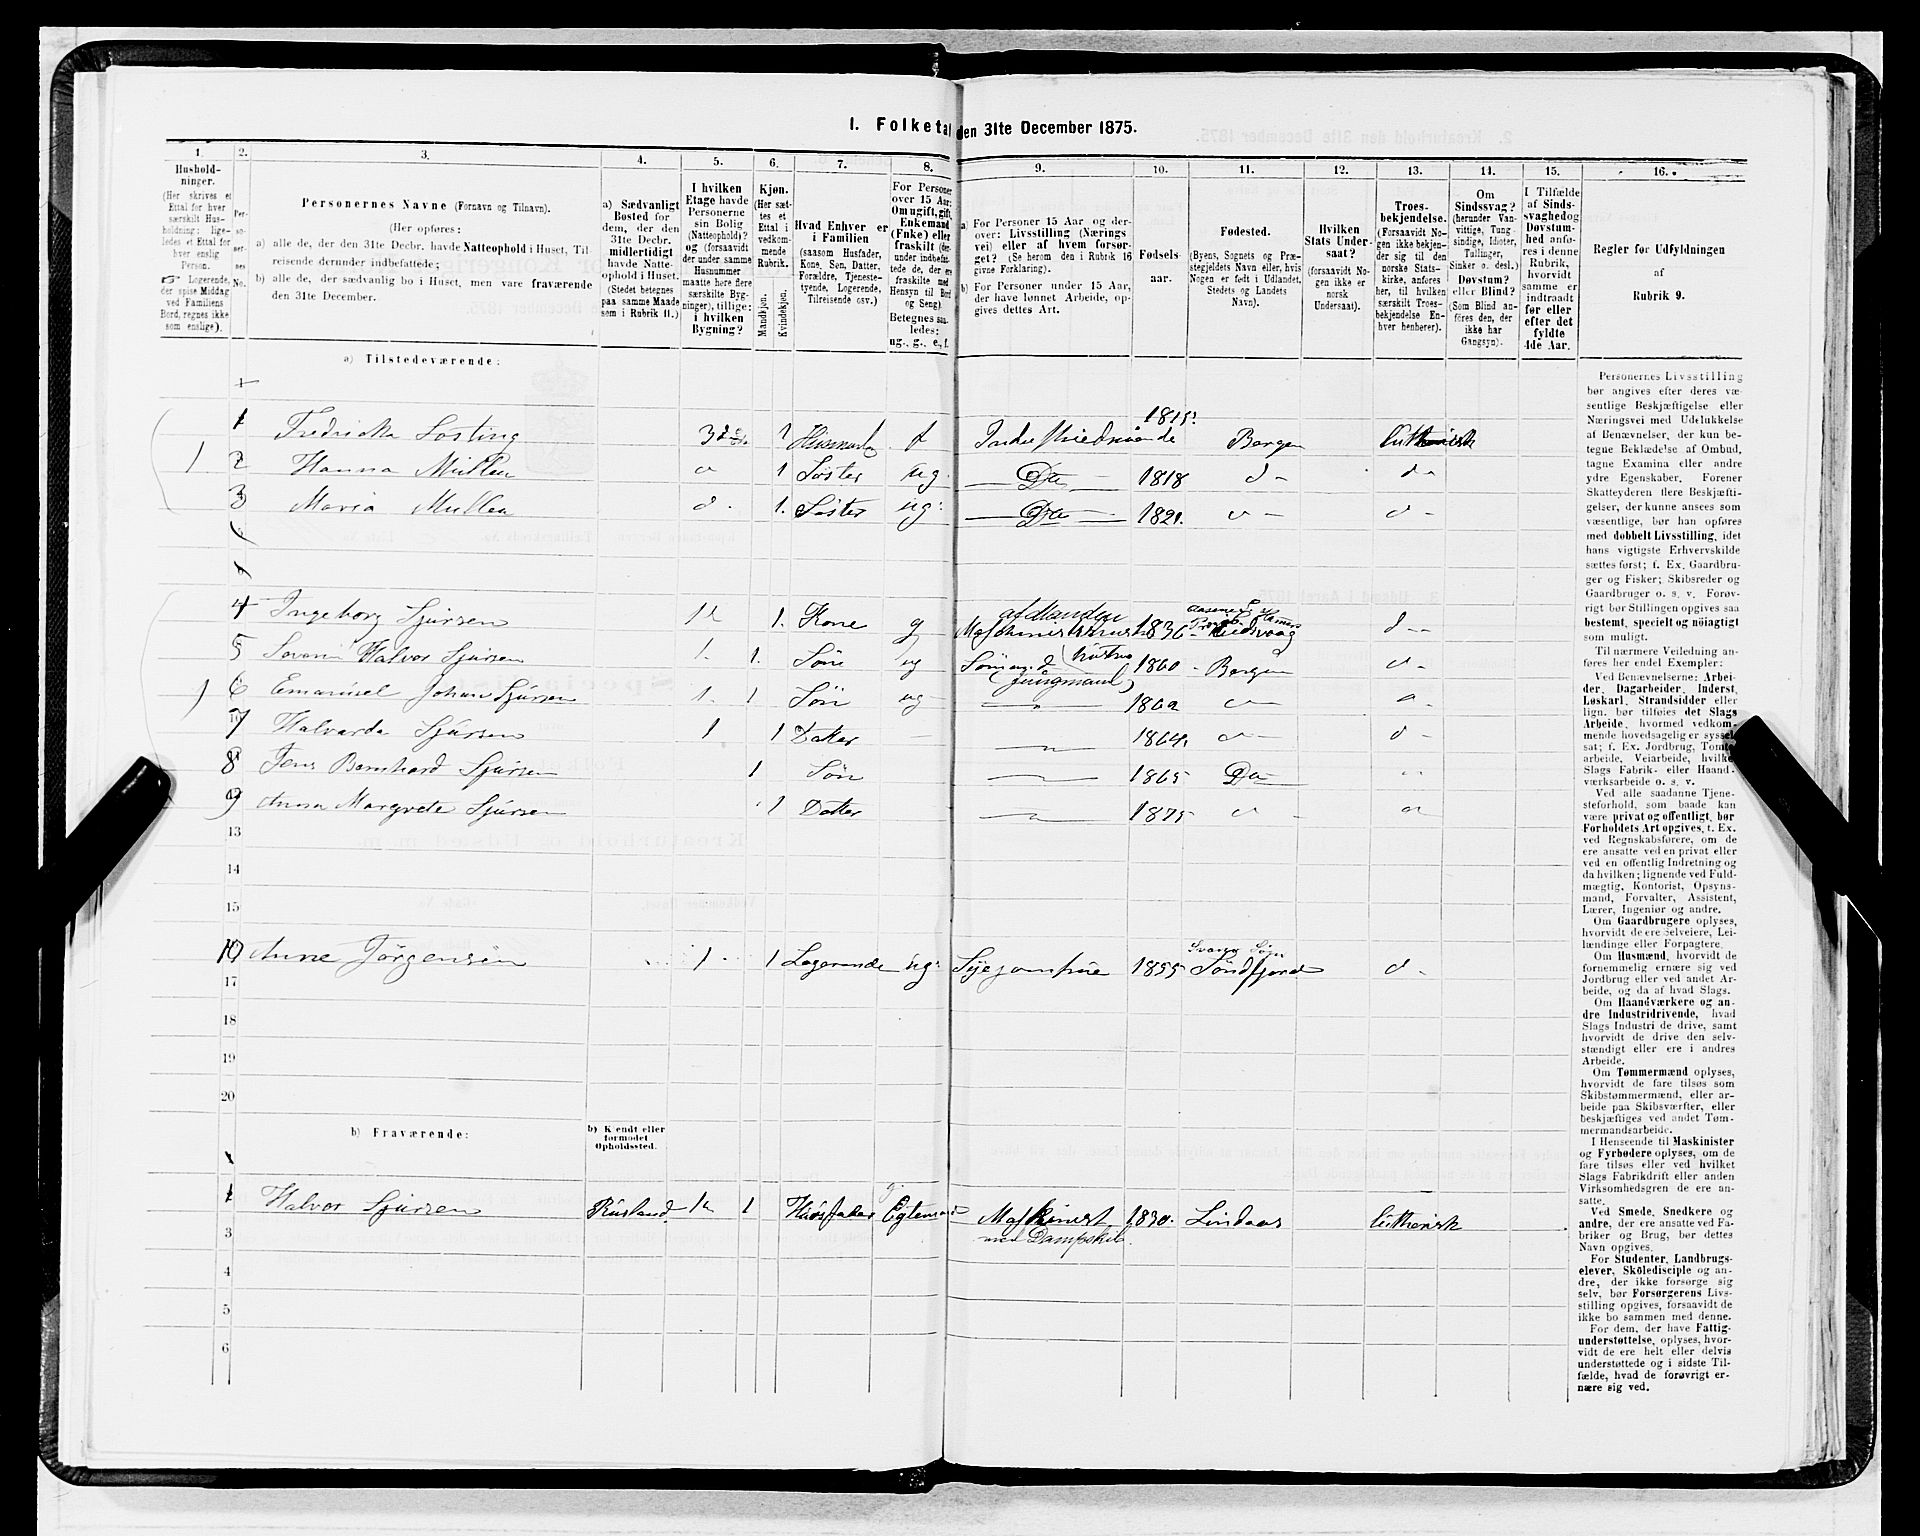 I. Folketal den 31te December 1875.
1. 2. 3. 4. 5. 6. 7. 8. 9. 10. 11. 12. 13. 14. 15. 16.
Hushold-
ninger.
(Her skrives et
Ettal for hver
særskilt Hus-
holdning; lige-
ledes et Ettal for
hver enslig
Person.
Logerende,
der spise Middag
ved Familiens
Bord, regnes ikke
som enslige).
Per-
so-
ner-
nes
No.
Personernes Navne (Fornavn og Tilnavn).
(Her opføres:
a) alle de, der den 31te Decbr. havde Natteophold i Huset, Til-
reisende derunder indbefattede;
b) alle de, der sædvanlig bo i Huset, men vare fraværende
den 31te December.
a) Sædvanligt
Bosted for
dem, der den
31te Decbr.
midlertidigt
havde Natte-
ophold i Huset.
(Stedet betegnes
paa samme Maade
som i Rubrik 11.)
I hvilken
Etage havde
Personerne
sin Bolig
(Natteophold)?
og (forsaavidt
der under samme
Husnummer
maatte høre flere
særskilte Byg-
ninger), tillige:
i hvilken
Bygning?
Kjøn.
(Her sæt-
tes et
Ettal i
vedkom-
mende
Rubrik.
Mandkjøn.
Kvindekjøn.
Hvad Enhver er
i Familien
(saasom Husfader,
Kone, Søn, Datter,
Forældre, Tjeneste-
tyende, Logerende,
Tilreisende osv.)
For Personer
over 15 Aar:
Om ugift, gift,
Enkemand
(Enke) eller
fraskilt (der-
under indbefat-
tede de, der ere
fraskilte med
Hensyn til Bord
og Seng)
Betegnes saa-
ledes:
ug., g., e., f.
a) For Personer 15 Aar og der-
over: Livsstilling (Nærings-
vei) eller af hvem forsør-
get? (Se herom den i Rubrik 16
givne Forklaring).
b) For Personer under 15 Aar,
der have lønnet Arbeide, op-
gives dettes Art.
Fødsels-
aar.
Fødested.
(Byens, Sognets og Præ-
stegjeldets Navn eller, hvis
Nogen er født i Udlandet,
Stedets og Landets
Navn).
Hvilken
Stats Under-
saat?
(forsaavidt No-
gen ikke er
norsk
Undersaat).
Troes-
bekjendelse.
(Forsaavidt No-
gen ikke bekjen-
der sig til den
norske Stats-
kirke, anføres
her, til hvilken
særskilt Troes-
bekjendelse En-
hver henhører).
Om
Sindssvag?
(herunder Van-
vittige, Tung-
sindige, Idioter,
Tullinger,
Sinker o. desl.)
Døvstum?
eller Blind?
(Som Blind an-
føres den, der
ikke har
Gangsyn).
I Tilfælde
af Sinds-
svaghedog
Døvstum-
hed anfø-
res i denne
Rubrik,
hvorvidt
samme er
indtraadt
før eller
efter det
fyldte
4de Aar.
Regler før Udfyldningen
af
Rubrik 9.
a) Tilstedeværende:
1 Fredrikka Lösting 3 f 1815 Bergen luthersk
1 2 Hanna Müller 1 Söster ug. Do 1818 d
3 Maria Müller d 1. Söster ug. Do 1821. d
4 Ingeborg Sjursen 1. Kone g af Manden 1836
5 Halvor Sjursen 1. 1. Sön ug 1860 Bergen d
1 6 Emanuel Johan Sjursen 1. 1 Sön ug (Jungmand) 1862
7 Halvarda Sjursen 1 1 Datter 1864. d
8 Jens Bernhard Sjursen 1 Sön 1865 Do
9 Anna Margrete Sjursen 1 Datter 1875
13
14
15
10 Anne Jörgensen 1 1 Logerende ug. Syejomfrue 1855 Söndfjord d
17
18
19
20
b) Fraværende:
b) Kjendt eller
formodet
Opholdssted.
1 Halvor Sjursen Rusland 1 Huusfader g. Maskinist 1830. Lindaas luthersk
med Dampskib.
3
4
5
6
Personernes Livsstilling
bør angives efter deres væ-
sentlige Beskjæftigelse eller
Næringsvei med Udelukkelse
af Benævnelser, der kun be-
tegne Beklædelse af Ombud,
tagne Examina eller andre
ydre Egenskaber. Forener
Skatteyderen flere Beskjæfti-
gelser, der kunne ansees som
væsentlige, bør han opføres
med dobbelt Livsstilling, idet
hans vigtigste Erhvervskilde
sættes først; f. Ex. Gaardbru-
ger og Fisker; Skibsreder og
Gaardbruger o. s. v. Forøv-
rigt bør Stillingen opgives saa
bestemt, specielt og nøiagtigt
som muligt.
Til nærmere Veiledning an-
føres her endel Exempler:
Ved Benævnelserne: Arbei-
der, Dagarbeider, Inderst,
Løskarl, Strandsidder eller
lign. bør tilføies det Slags
Arbeide, hvormed vedkom-
mende hovedsagelig er syssel-
sat; f. Ex. Jordbrug, Tomte-
arbeide, Veiarbeide, hvilket
Slags Fabrik- eller Haand-
værksarbeide o. s. v.
Ved alle saadanne Tjene-
steforhold, som baade kan
være privat og offentligt, bør
Forholdets Art opgives, f. Ex.
ved Regnskabsførere, om de
ere ansatte ved en privat eller
ved en offentlig Indretning og
da hvilken; lignende ved Fuld-
mægtig, Kontorist, Opsyns-
mand, Forvalter, Assistent,
Lærer, Ingeniør og andre.
Om Gaardbrugere oplyses,
hvorvidt de ere Selveiere, Lei-
lændinge eller Forpagtere.
Om Husmænd, hvorvidt de
fornemmelig ernære sig ved
Jordbrug eller ved andet Ar-
beide, og da af hvad Slags.
Om Haandværkere og an-
dre Industridrivende, hvad
Slags Industri de drive, samt
hvorvidt de drive den selv-
stændigt eller ere i andres
Arbeide.
Om Tømmermænd oplyses,
hvorvidt de fare tilsøs som
Skibstømmermænd, eller ar-
beide paa Skibsværfter, eller
beskjæftiges ved andet Tøm-
mermandsarbeide.
I Henseende til Maskinister
og Fyrbødere oplyses, om de
fare tilsøs eller ved hvilket
Slags Fabrikdrift eller anden
Virksomhedsgren de ere an-
satte.
Ved Smede, Snedkere og
andre, der ere ansatte ved Fa-
briker og Brug, bør dettes
Navn opgives.
For Studenter, Landbrugs-
elever, Skoledisciple og an-
dre, der ikke forsørge sig
selv, bør Forsørgerens Livs-
stilling opgives, forsaavidt de
ikke bo sammen med denne.
For dem, der have Fattig-
understøttelse, oplyses, hvor-
vidt de ere helt eller delvis
understøttede og i sidste Til-
fælde, hvad de forøvrigt er-
nære sig ved.